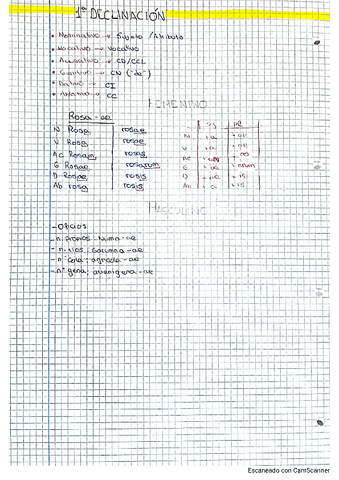 1ª DECLINACIÓN
• Nominativo → Sujeto / Atributo
• Vocativo → Vocativo
• Acusativo → CD/CCL
• Genitivo → CN ("de")
• Dativo → CI
• Ablativo → CC
FEMENINO
Rosa - ae
sg pl
N Rosa rosae N +a +ae
V Rosa rosae V +a +ae
Ac Rosam rosas Ac +am +as
G Rosae rosarum G +ae +arum
D Rosae rosis D +ae +is
Ab rosa rosis Ab +a +is
MASCULINO
- Oficios
- n. propios: Numa - ae
- n. ríos: Garumna - ae
: agricola - ae
- ae
Escaneado con CamScanner